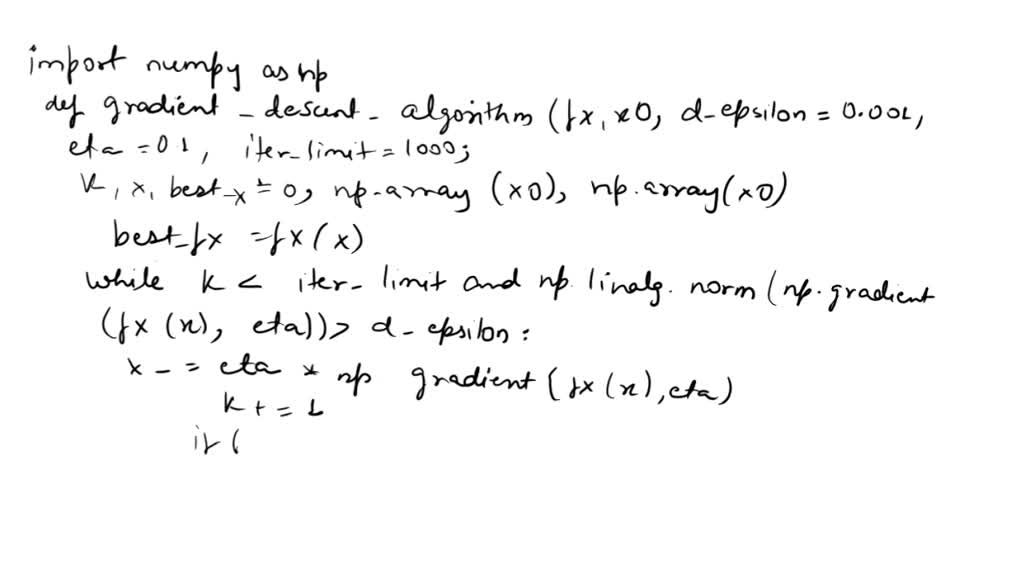 import numpy as np
def gradient - descent - algorithm (fx, x0, d-epsilon = 0.001,
eta = 0 1, iter-limit = 1000;
K, x, best-x = 0, np-array (x0), np.array(x0)
best-fx = fx(x)
while K < iter-limit and np. linalg. norm (np.gradient
(fx (x), eta)) > d-epsilon:
x - = eta * np gradient (fx (x), eta)
K + = 1
if (